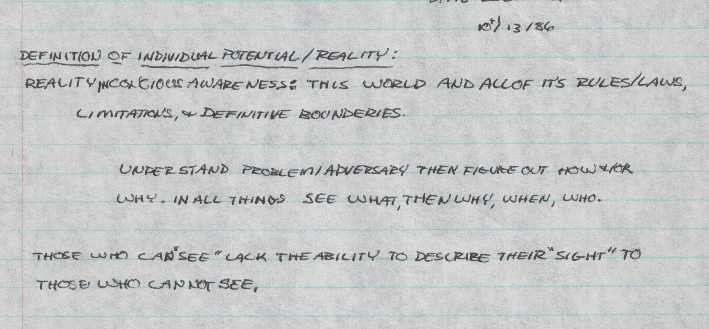 10/13/86
DEFINITION OF INDIVIDUAL POTENTIAL/REALITY:
REALITY, AWARENESS: THIS WORLD AND ALL OF IT'S RULES/LAWS,
LIMITATIONS, & DEFINITIVE BOUNDERIES.
UNDERSTAND PROBLEM/ADVERSARY THEN FIGURE OUT HOW &/OR
WHY. IN ALL THINGS SEE WHAT, THEN WHY, WHEN, WHO.
THOSE WHO CAN "SEE" LACK THE ABILITY TO DESCRIBE THEIR "SIGHT" TO
THOSE WHO CANNOT SEE,